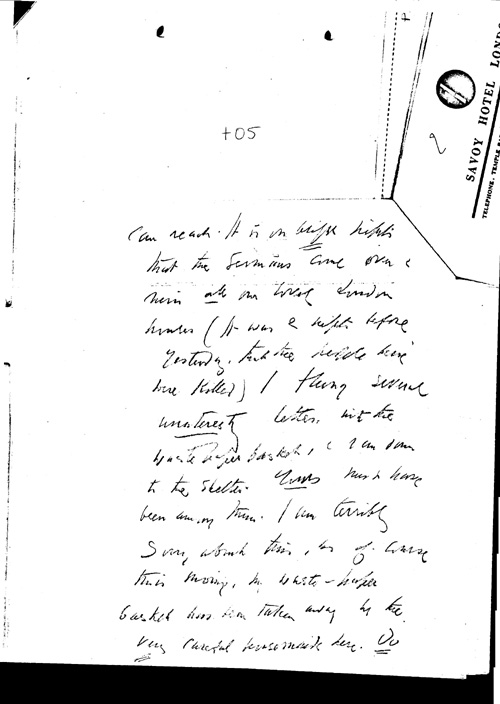 +05
2
SAVOY HOTEL LOND
TELEPHONE · TEMPLE
Can reach. It is on bright nights
that the Germans come over &
ruin all our lovely London
houses (It was a night before
yesterday, that the people here
were killed) I flung several
letters into the
waste paper basket, & ran down
to the shelter. Yours must have
been among them. I am terribly
Sorry about this, as of course
this morning, my waste-paper
basket has been taken away by the
very careful housemaids here. Do